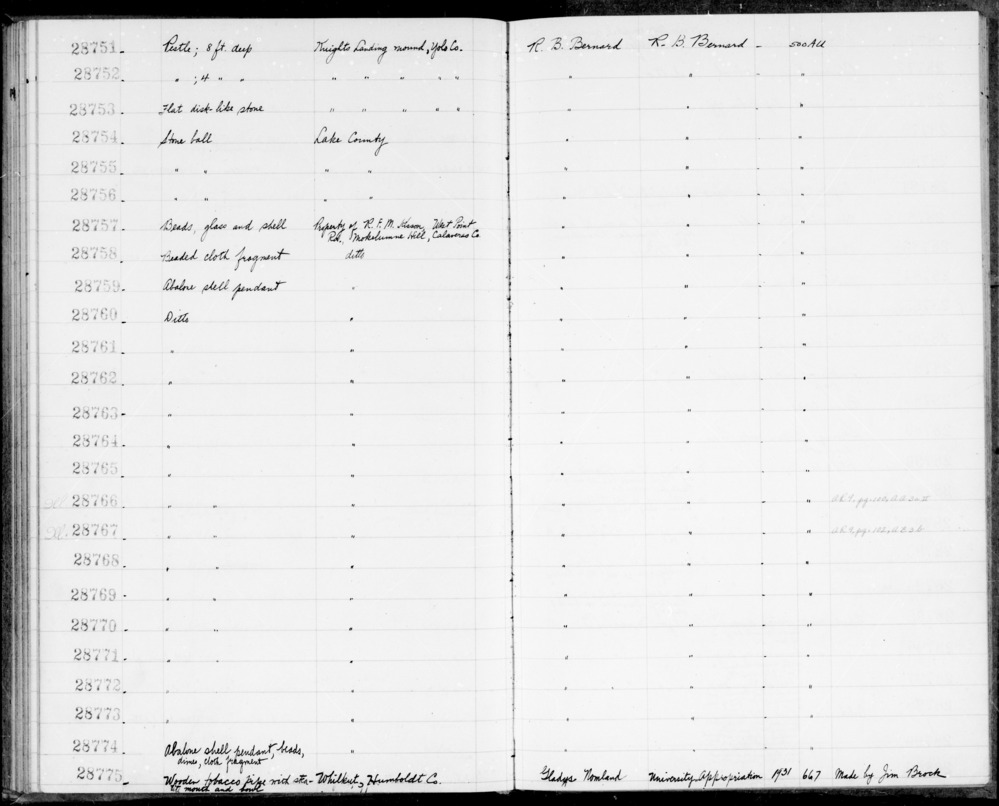 28751. Pestle; 8 ft. deep Knights Landing mound, Yolo Co. R. B. Bernard R. B. Bernard - 500 All
28752. " ; 4 " " " " " " " " " - "
28753. Flat disk-like stone " " " " " " " - "
28754. Stone ball Lake County " " - "
28755. " " " " " " - "
28756. " " " " " " - "
28757. Beads, glass and shell Property of R. F. M. West Point
Rd., Mokelumne Hill, Calaveras Co " " - "
28758. Beaded cloth fragment ditto " " - "
28759. Abalone shell pendant " " " - "
28760. Ditto " " " - "
28761. " " " " - "
28762. " " " " - "
28763. " " " " - "
28764. " " " " - "
28765. " " " " - "
28766. " " " " " - "
28767. " " " " " - "
28768. " " " " " - "
28769. " " " " " - "
28770. " " " " " - "
28771. " " " " " - "
28772. " " " " - "
28773. " " " " - "
28774. Abalone shell pendant, beads, " " " - "
dimes, cloth fragment
28775. Wooden tobacco pipe with Whilkut, Humboldt Co. Gladys Nomland University Appropriation 1931 667 Made by Jim Brock
at mouth and bowl